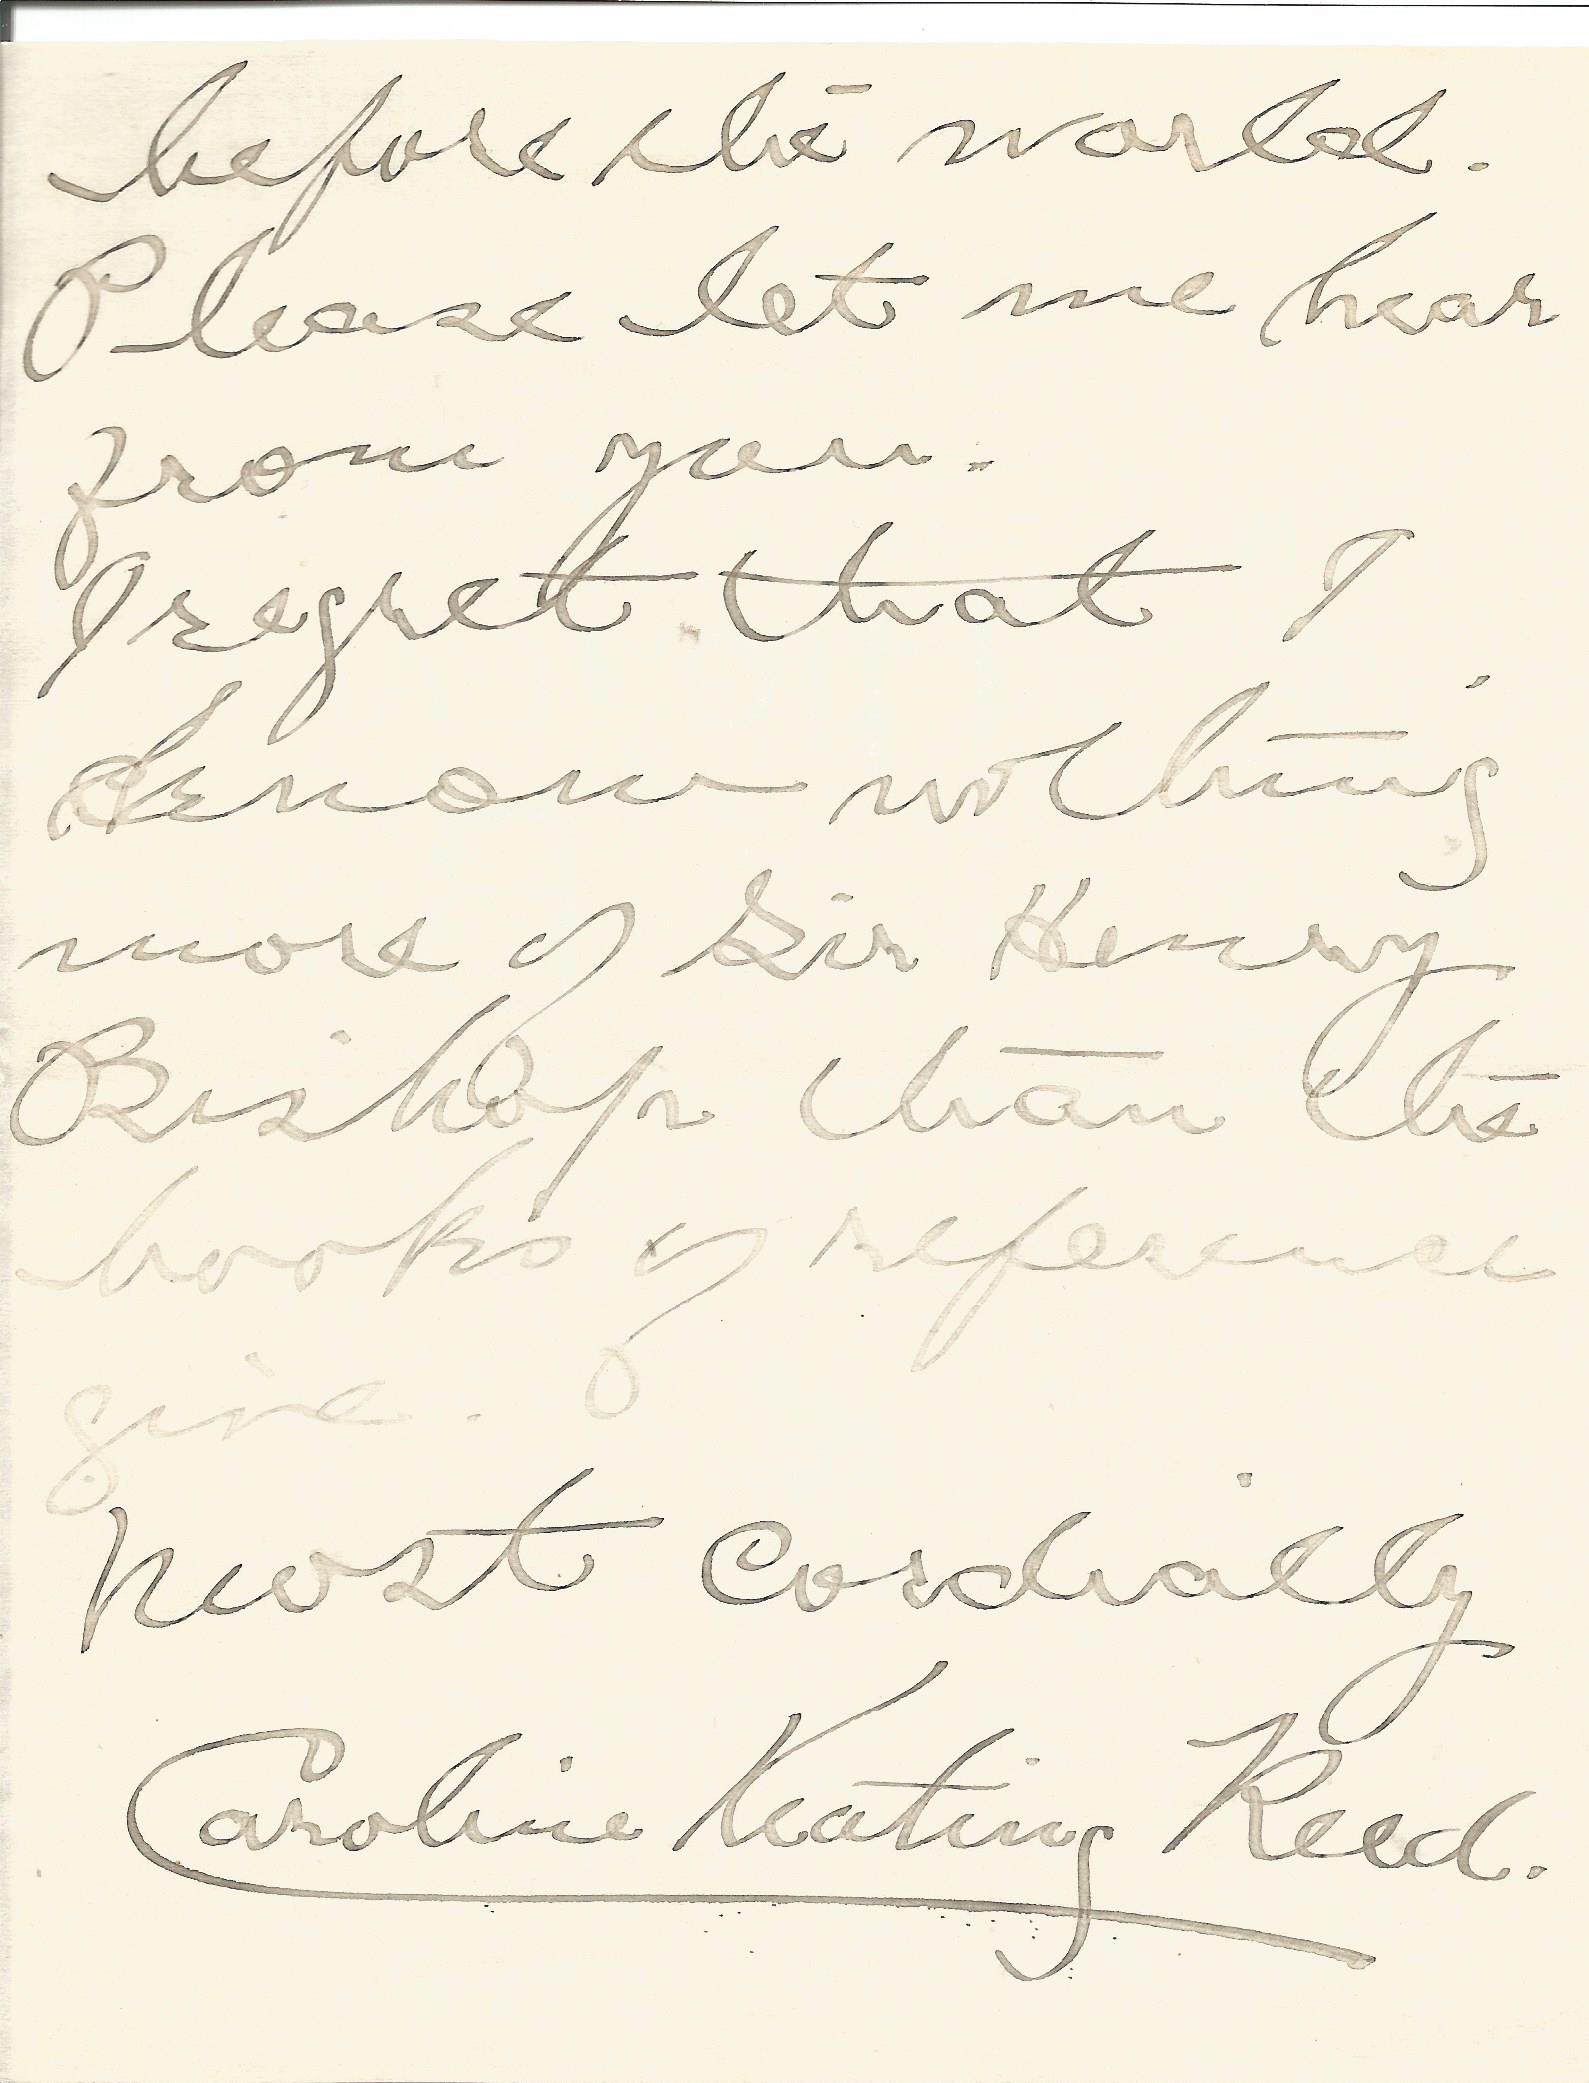 before the world.
Please let me hear
from you.
I regret that I
know nothing
more of Sir Henry
Bishop than the
books of reference
give.
Most Cordially
Caroline Keating Reed.